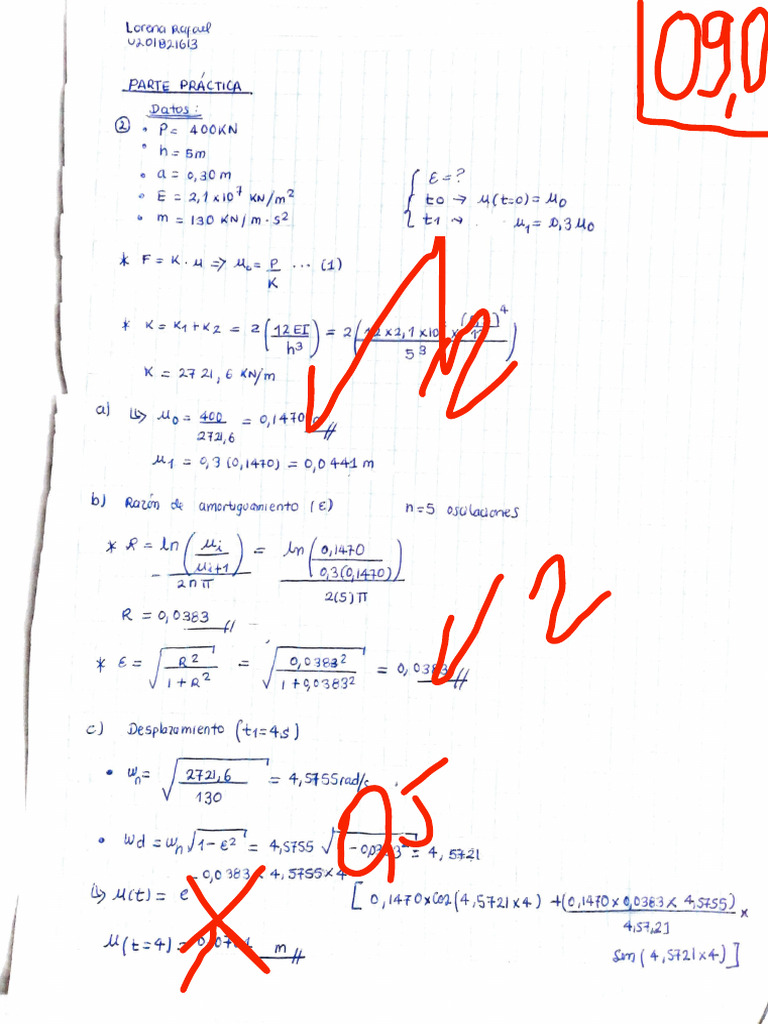 Lorena Rafael
U201821613
09,0
PARTE PRÁCTICA
Datos:
② • P = 400KN
• h = 5m
• a = 0,30 m
• E = 2,1×10⁷ KN/m²
• m = 130 KN/m·s²
ε = ?
t0 → μ(t=0) = μ0
t1 → μ1 = 0,3μ0
* F = K·μ => μi = P/K ... (1)
* K = K1 + K2 = 2(12EI/h³) = 2(
5³
K = 2721,6 KN/m
2
a) ↳ μ0 = 400/2721,6 = 0,1470
μ1 = 0,3(0,1470) = 0,0441 m
b) Razón de amortiguamiento (ε) n=5 oscilaciones
* R = ln(μi/μi+1)/2nπ = ln(0,1470/0,3(0,1470))/2(5)π
R = 0,0383
2
* ε = √(R²/1+R²) = √(0,0383²/1+0,0383²) = 0,0383
c) Desplazamiento (t1=4s)
• Wn = √(2721,6/130) = 4,5755 rad/s
0,5
• Wd = Wn√(1-ε²) = 4,5755 √ = 4,5721
↳ μ(t) = e^(-0,0383×4,5755×4) [0,1470×Cos(4,5721×4) + (0,1470×0,0383×4,5755)/4,5721 ×
Sen(4,5721×4)]
μ(t=4) = m